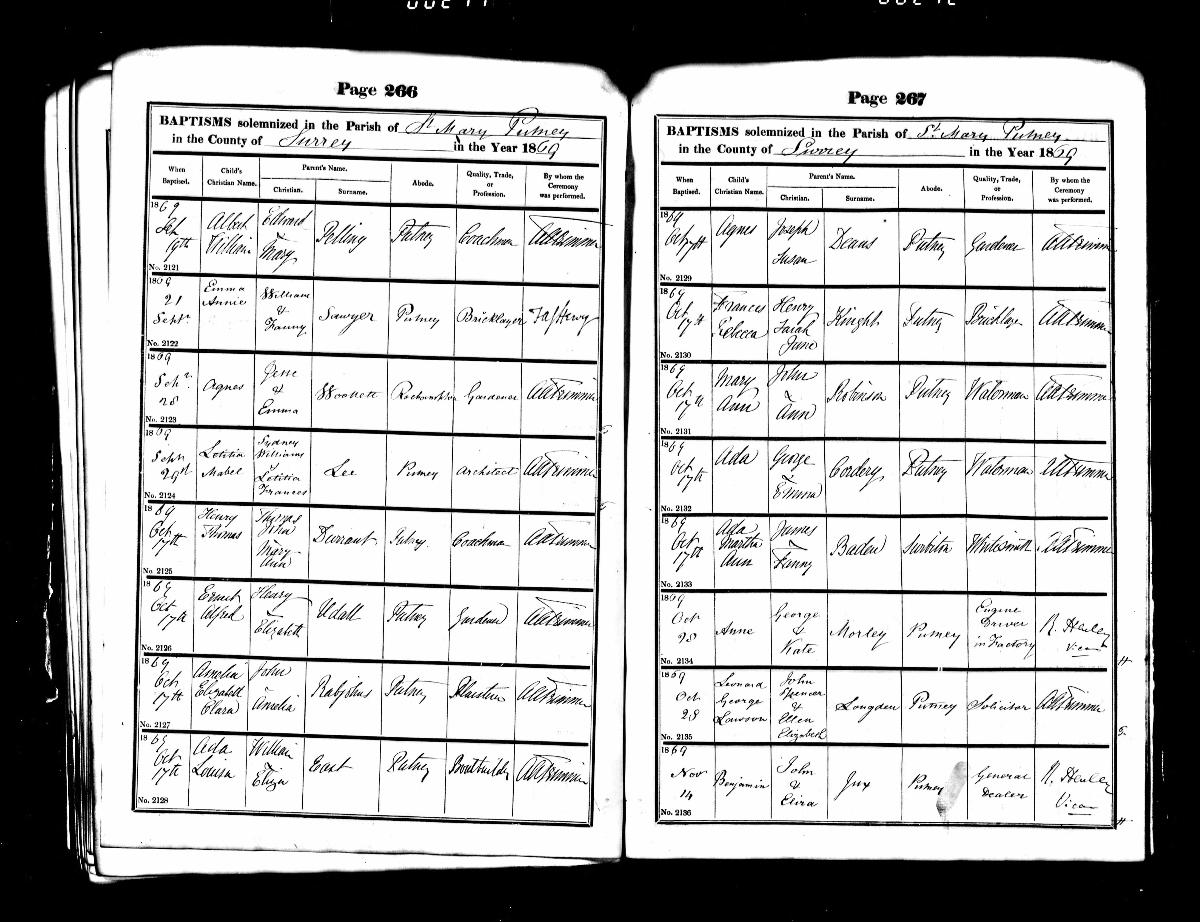 Page 266
BAPTISMS solemnized in the Parish of St Mary Putney
in the County of Surrey in the Year 1869
When Baptised. Child's Christian Name. Parent's Name. Christian. Surname. Abode. Quality, Trade, or Profession. By whom the Ceremony was performed.
1869
Albert William
Edward & Mary
Pelling
Putney
Coachman
No. 2121
1869
21 Septr
Emma Annie
William & Fanny
Sawyer
Putney
Bricklayer
No. 2122
1869
Septr. 28
Agnes
& Emma
Gardener
No. 2123
1869
Septr 29th
Letitia Mabel
Sydney Williams & Letitia Frances
Lee
Putney
Architect
No. 2124
1869
Oct 17th
Henry Thomas
Thomas John & Mary Ann
Durrant
Putney.
Coachman
No. 2125
1869
Oct 17th
Ernest Alfred
Henry & Elizabeth
Udall
Putney
Gardener
No. 2126
1869
Oct 17th
Amelia Elizabeth Clara
John & Amelia
Rabjohns
Putney
Plasterer
No. 2127
1869
Oct 17th
Ada Louisa
William & Eliza
East
Putney
Boatbuilder
No. 2128
Page 267
BAPTISMS solemnized in the Parish of St. Mary Putney
in the County of Surrey in the Year 1869
When Baptised. Child's Christian Name. Parent's Name. Christian. Surname. Abode. Quality, Trade, or Profession. By whom the Ceremony was performed.
1869
Agnes
Joseph Susan
Deans
Putney
Gardener
No. 2129
1869
Oct 17th
Frances Rebecca
Henry Sarah Jane
Knight
Putney
Bricklayer
No. 2130
1869
Oct 17th
Mary Ann
John & Ann
Robinson
Putney
Waterman
No. 2131
1869
Oct 17th
Ada
George & Emma
Cordery
Putney
Waterman
No. 2132
1869
Oct 17th
Ada Martha Ann
James & Fanny
Baden
Surbiton
Whitesmith
No. 2133
1869
Oct 28
Anne
George & Kate
Morley
Putney
Engine Driver in Factory
R. Henley Vicar
No. 2134
1869
Oct 28
Leonard George Lawson
John Spencer & Ellen Elizabeth
Longden
Putney
Solicitor
No. 2135
1869
Nov 14
Benjamin
John & Eliza
Jux
Putney
General Dealer
R. Henley Vicar
No. 2136